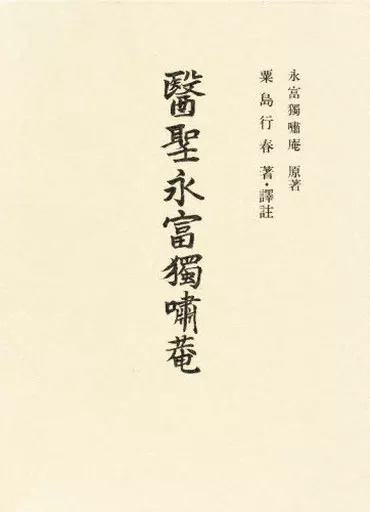 永富獨嘯庵 原著
粟島行春 著・譯註
醫聖永富獨嘯菴